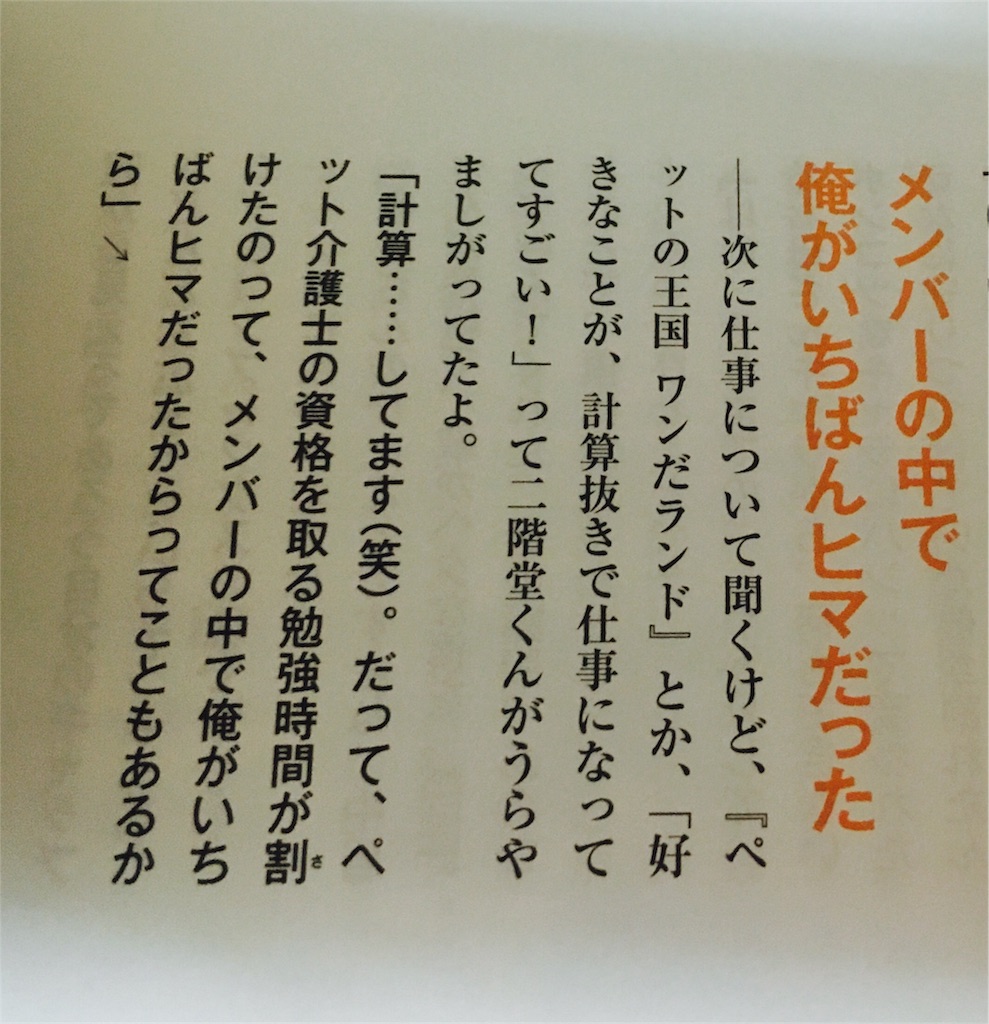 メンバーの中で
俺がいちばんヒマだった
――次に仕事について聞くけど、『ペ
ットの王国 ワンだランド』とか、「好
きなことが、計算抜きで仕事になって
てすごい！」って二階堂くんがうらや
ましがってたよ。
「計算……してます（笑）。だって、ペ
ット介護士の資格を取る勉強時間が割さ
けたのって、メンバーの中で俺がいち
ばんヒマだったからってこともあるか
ら」↘